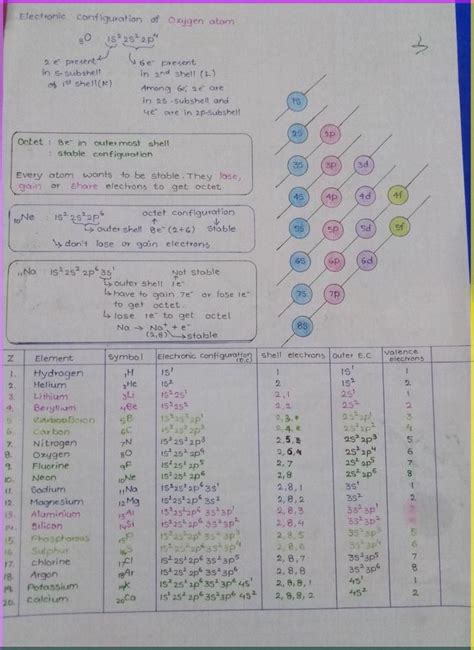 Electronic configuration of Oxygen atom
₈O : 1s² 2s² 2p⁴
2e⁻ present
in s-subshell
of 1st shell (K)
6e⁻ present
in 2nd shell (L)
Among 6, 2e⁻ are
in 2s-subshell and
4e⁻ are in 2p-subshell
Octet : 8e⁻ in outermost shell
: stable configuration
Every atom wants to be stable. They lose,
gain or share electrons to get octet
₁₀Ne : 1s² 2s² 2p⁶ octet configuration
↳ outer shell 8e⁻ (2+6) Stable
↳ don't lose or gain electrons
₁₁Na : 1s² 2s² 2p⁶ 3s¹ Not stable
↳ outer shell 1e⁻
↳ have to gain 7e⁻ or lose 1e⁻
to get octet.
↳ lose 1e⁻ to get octet
Na → Na⁺ + e⁻
(2,8) → stable
1s
2s 2p
3s 3p 3d
4s 4p 4d 4f
5s 5p 5d 5f
6s 6p 6d
7s 7p
8s
Z Element Symbol Electronic configuration (E.C) Shell electrons Outer E.C Valence electrons
1. Hydrogen ₁H 1s¹ 1 1s¹ 1
2. Helium ₂He 1s² 2 1s² 2
3. Lithium ₃Li 1s² 2s¹ 2,1 2s¹ 1
4. Beryllium ₄Be 1s² 2s² 2,2 2s² 2
5 Boron ₅B 1s² 2s² 2p¹ 2,3 2s² 2p¹ 3
6. Carbon ₆C 1s² 2s² 2p² 2,4 2s² 2p² 4
7. Nitrogen ₇N 1s² 2s² 2p³ 2,5 2s² 2p³ 5
8. Oxygen ₈O 1s² 2s² 2p⁴ 2,6 2s² 2p⁴ 6
9. Fluorine ₉F 1s² 2s² 2p⁵ 2,7 2s² 2p⁵ 7
10. Neon ₁₀Ne 1s² 2s² 2p⁶ 2,8 2s² 2p⁶ 8
11. Sodium ₁₁Na 1s² 2s² 2p⁶ 3s¹ 2,8,1 3s¹ 1
12. Magnesium ₁₂Mg 1s² 2s² 2p⁶ 3s² 2,8,2 3s² 2
13. Aluminium ₁₃Al 1s² 2s² 2p⁶ 3s² 3p¹ 2,8,3 3s² 3p¹
14. Silicon ₁₄Si 1s² 2s² 2p⁶ 3s² 3p² 2,8,4 3s² 3p²
15. Phosphorous ₁₅P 1s² 2s² 2p⁶ 3s² 3p³ 2,8,5 3s² 3p³ 5
16 Sulphur ₁₆S 1s² 2s² 2p⁶ 3s² 3p⁴ 2,8,6 3s² 3p⁴ 6
17. Chlorine ₁₇Cl 1s² 2s² 2p⁶ 3s² 3p⁵ 2,8,7 3s² 3p⁵ 7
18. Argon ₁₈Ar 1s² 2s² 2p⁶ 3s² 3p⁶ 2,8,8 3s² 3p⁶ 8
19. Potassium ₁₉K 1s² 2s² 2p⁶ 3s² 3p⁶ 4s¹ 2,8,8,1 4s¹ 1
20. Calcium ₂₀Ca 1s² 2s² 2p⁶ 3s² 3p⁶ 4s² 2,8,8,2 4s² 2